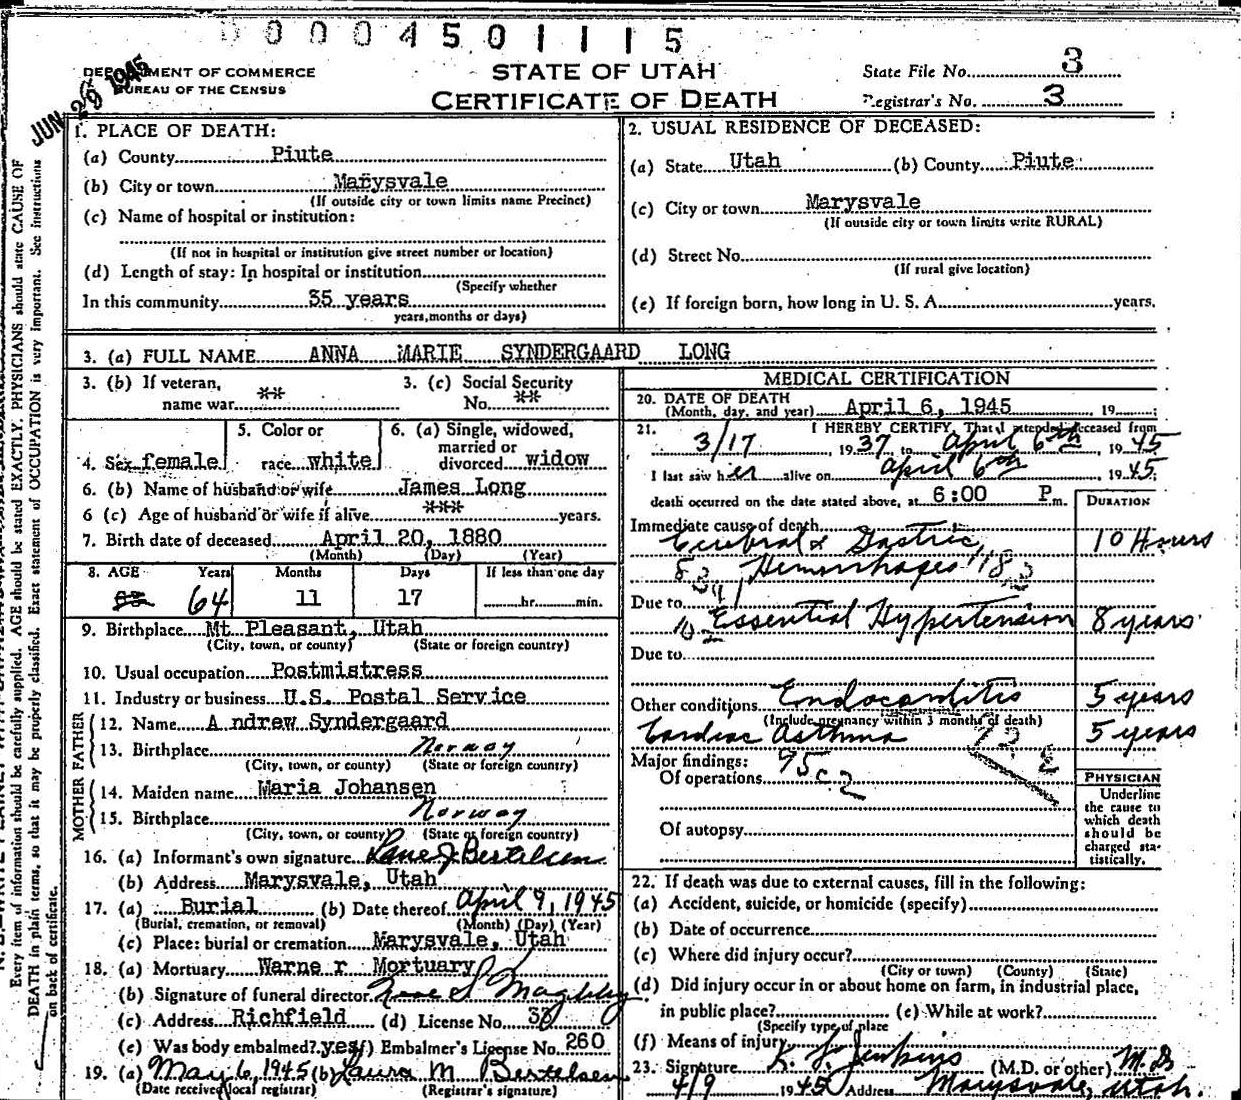 0000450 1115
JUN 29 1945
DEPARTMENT OF COMMERCE
BUREAU OF THE CENSUS
STATE OF UTAH
CERTIFICATE OF DEATH
State File No. 3
Registrar's No. 3
Every item of information should be carefully supplied. AGE should be stated EXACTLY. PHYSICIANS should state CAUSE OF
DEATH in plain terms, so that it may be properly classified. Exact statement of OCCUPATION is very important. See instructions
on back of certificate.
1. PLACE OF DEATH:
(a) County Piute
(b) City or town Marysvale
(If outside city or town limits name Precinct)
(c) Name of hospital or institution:
(If not in hospital or institution give street number or location)
(d) Length of stay: In hospital or institution
(Specify whether
In this community 35 years
years, months or days)
2. USUAL RESIDENCE OF DECEASED:
(a) State Utah (b) County Piute
(c) City or town Marysvale
(If outside city or town limits write RURAL)
(d) Street No.
(If rural give location)
(e) If foreign born, how long in U. S. A. years.
3. (a) FULL NAME ANNA MARIE SYNDERGAARD LONG
3. (b) If veteran, name war **
3. (c) Social Security No. **
4. Sex female
5. Color or race white
6. (a) Single, widowed, married or divorced widow
6. (b) Name of husband or wife James Long
6 (c) Age of husband or wife if alive *** years.
7. Birth date of deceased April 20, 1880
(Month) (Day) (Year)
8. AGE Years Months Days If less than one day
64 11 17 hr. min.
9. Birthplace Mt Pleasant, Utah
(City, town, or county) (State or foreign country)
10. Usual occupation Postmistress
11. Industry or business U.S. Postal Service
FATHER
12. Name Andrew Syndergaard
13. Birthplace Norway
(City, town, or county) (State or foreign country)
MOTHER
14. Maiden name Maria Johansen
15. Birthplace Norway
(City, town, or county) (State or foreign country)
16. (a) Informant's own signature Lane J Bertelsen
(b) Address Marysvale, Utah
17. (a) Burial (b) Date thereof April 9, 1945
(Burial, cremation, or removal) (Month) (Day) (Year)
(c) Place: burial or cremation Marysvale, Utah
18. (a) Mortuary Warner Mortuary
(b) Signature of funeral director
(c) Address Richfield (d) License No.
(e) Was body embalmed? yes (f) Embalmer's License No. 260
19. (a) May 6, 1945 (b) Laura M Bertelsen
(Date received local registrar) (Registrar's signature)
MEDICAL CERTIFICATION
20. DATE OF DEATH
(Month, day, and year) April 6, 1945 19 ;
21. I HEREBY CERTIFY, That I attended deceased from
3/17, 19 37 to April 6th, 19 45
I last saw her alive on April 6th, 19 45;
death occurred on the date stated above, at 6:00 P m.
DURATION
Immediate cause of death
Cerebral & Gastric 10 Hours
Hemorrhages
Due to Essential Hypertension 8 years
Due to
Other conditions Endocarditis 5 years
(Include pregnancy within 3 months of death)
Cardiac Asthma 5 years
Major findings: 95c2
Of operations
Of autopsy
PHYSICIAN
Underline
the cause to
which death
should be
charged sta-
tistically.
22. If death was due to external causes, fill in the following:
(a) Accident, suicide, or homicide (specify)
(b) Date of occurrence
(c) Where did injury occur?
(City or town) (County) (State)
(d) Did injury occur in or about home on farm, in industrial place,
in public place? (e) While at work?
(Specify type of place
(f) Means of injury
23. Signature K. J. Jenkins (M.D. or other) M.D
4/9 1945 Address Marysvale, Utah.